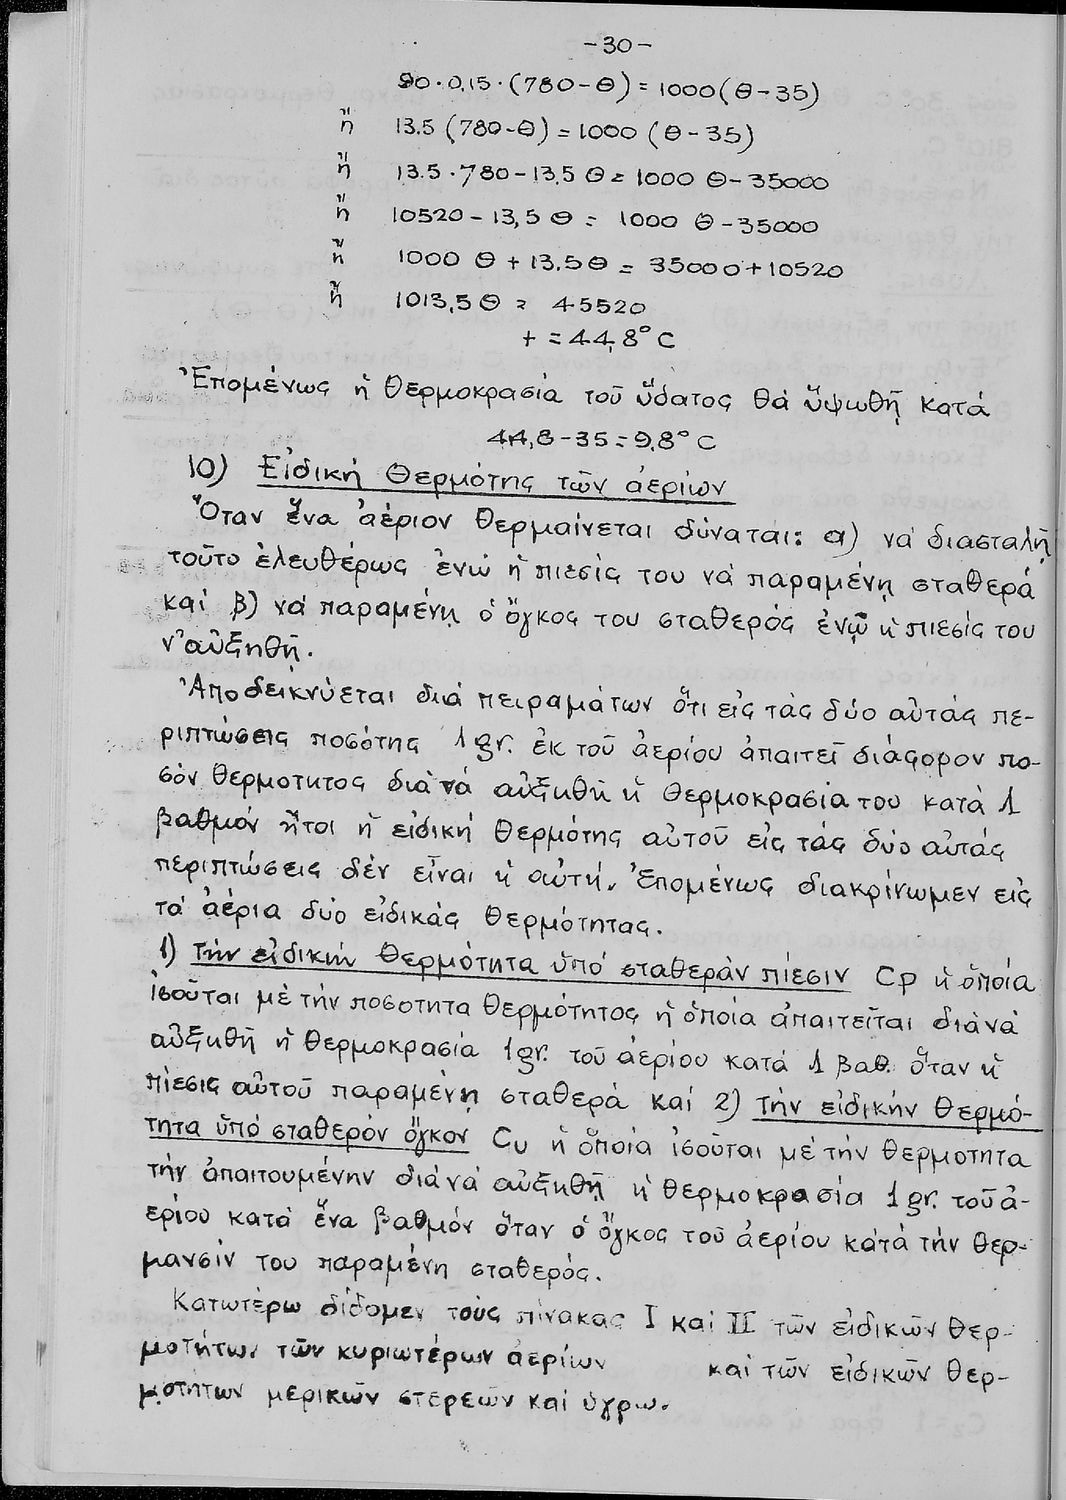 -30-
90·0,15·(780-Θ)=1000(Θ-35)
ἤ 13.5(780-Θ)=1000(Θ-35)
ἤ 13.5·780-13,5Θ=1000Θ-35000
ἤ 10520-13,5Θ= 1000 Θ-35000
ἤ 1000 Θ+13.5Θ= 35000+10520
ἤ 1013,5Θ= 45520
t =44,8°C
Ἑπομένως ἡ θερμοκρασία τοῦ ὕδατος θά ὑψωθῇ κατά
44,8-35=9,8°C
10) Εἰδική Θερμότης τῶν ἀερίων
Ὅταν ἕνα ἀέριον θερμαίνεται δύναται: α) νά διασταλῇ
τοῦτο ἐλευθέρως ἐνώ ἡ πιεσίς του νά παραμένῃ σταθερά
καί β) νά παραμένῃ ὁ ὄγκος του σταθερός ἐνῷ ἡ πιεσίς του
ν'αὐξηθῇ.
Ἀποδεικνύεται διά πειραμάτων ὅτι εἰς τάς δύο αὐτάς πε-
ριπτώσεις ποσότης 1gr. ἐκ τοῦ ἀερίου ἀπαιτεῖ διάφορον πο-
σόν θερμοτητος διά νά αὐξηθῇ ἡ θερμοκρασία του κατά 1
βαθμόν ἤτοι ἡ εἰδική θερμότης αὐτοῦ εἰς τάς δύο αὐτάς
περιπτώσεις δέν εἶναι ἡ αὐτή. Ἑπομένως διακρίνωμεν εἰς
τά ἀέρια δύο εἰδικάς θερμότητας.
1) Τήν εἰδικήν θερμότητα ὑπό σταθεράν πίεσιν Cp ἡ ὁποία
ἰσοῦται μέ τήν ποσοτητα θερμότητος ἡ ὁποία ἀπαιτεῖται διά νά
αὐξηθῇ ἡ θερμοκρασία 1gr. τοῦ ἀερίου κατά 1 βαθ. ὅταν ἡ
πίεσις αὐτοῦ παραμένῃ σταθερά καί 2) τήν εἰδικήν θερμό-
τητα ὑπό σταθερόν ὄγκον Cυ ἡ ὁποία ἰσοῦται μέ τήν θερμοτητα
τήν ἀπαιτουμένην διά νά αὐξηθῇ ἡ θερμοκρασία 1gr. τοῦ ἀ-
ερίου κατά ἕνα βαθμόν ὅταν ὁ ὄγκος τοῦ ἀερίου κατά τήν θερ-
μανσίν του παραμένη σταθερός.
Κατωτέρω δίδομεν τούς πίνακας I καί II τῶν εἰδικῶν θερ-
μοτήτων τῶν κυριωτέρων ἀερίων καί τῶν εἰδικῶν θερ-
μοτητων μερικῶν στερεῶν καί ὑγρω.